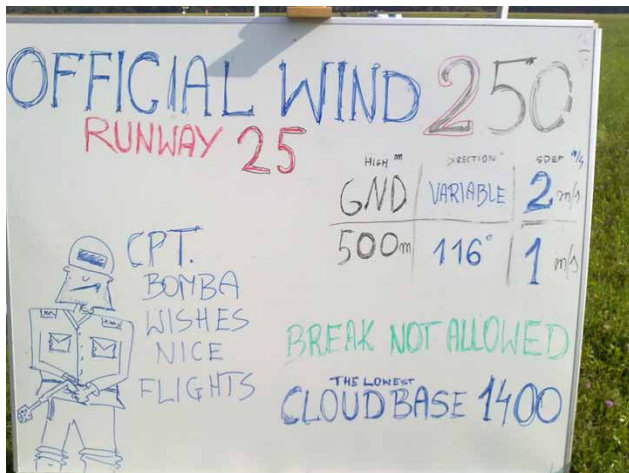 OFFICIAL WIND 250
RUNWAY 25
HIGH m DIRECTION ° SDEP m/s
GND VARIABLE 2 m/s
500m 116° 1 m/s
CPT.
BOMBA
WISHES
NICE
FLIGHTS
BREAK NOT ALLOWED
THE LOWEST
CLOUDBASE 1400